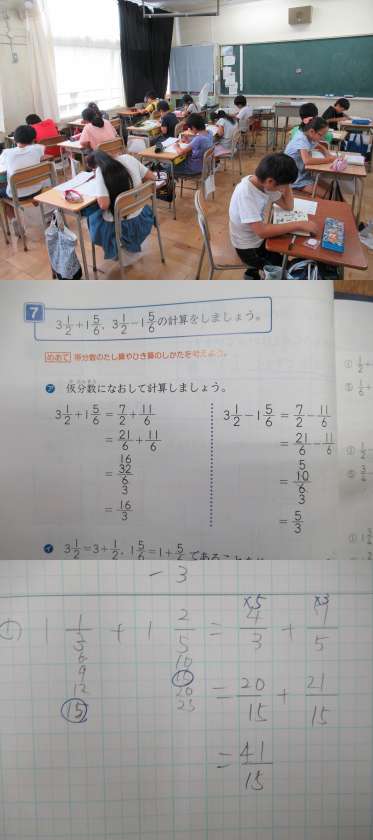 7
3 1/2 + 1 5/6, 3 1/2 − 1 5/6 の計算をしましょう。
めあて 帯分数のたし算やひき算のしかたを考えよう。
ア 仮分数になおして計算しましょう。
3 1/2 + 1 5/6 = 7/2 + 11/6
= 21/6 + 11/6
16
= 32/6
3
= 16/3
3 1/2 − 1 5/6 = 7/2 − 11/6
= 21/6 − 11/6
5
= 10/6
3
= 5/3
イ 3 1/2 = 3 + 1/2, 1 5/6 = 1 + 5/6 である
− 3
① 1 1/3 + 1 2/5 = 4/3 + 7/5
×5 ×3
6
9
12
15
10
15
20
25
= 20/15 + 21/15
= 41/15